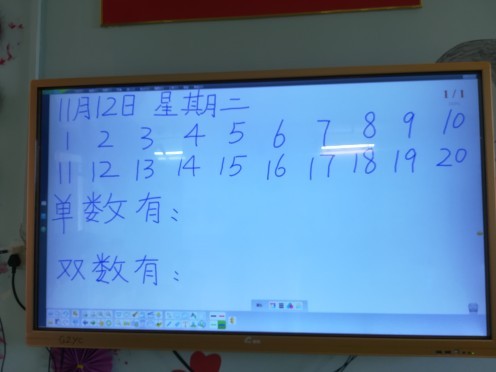 1/1
11月12日 星期二
1 2 3 4 5 6 7 8 9 10
11 12 13 14 15 16 17 18 19 20
单数有：
双数有：